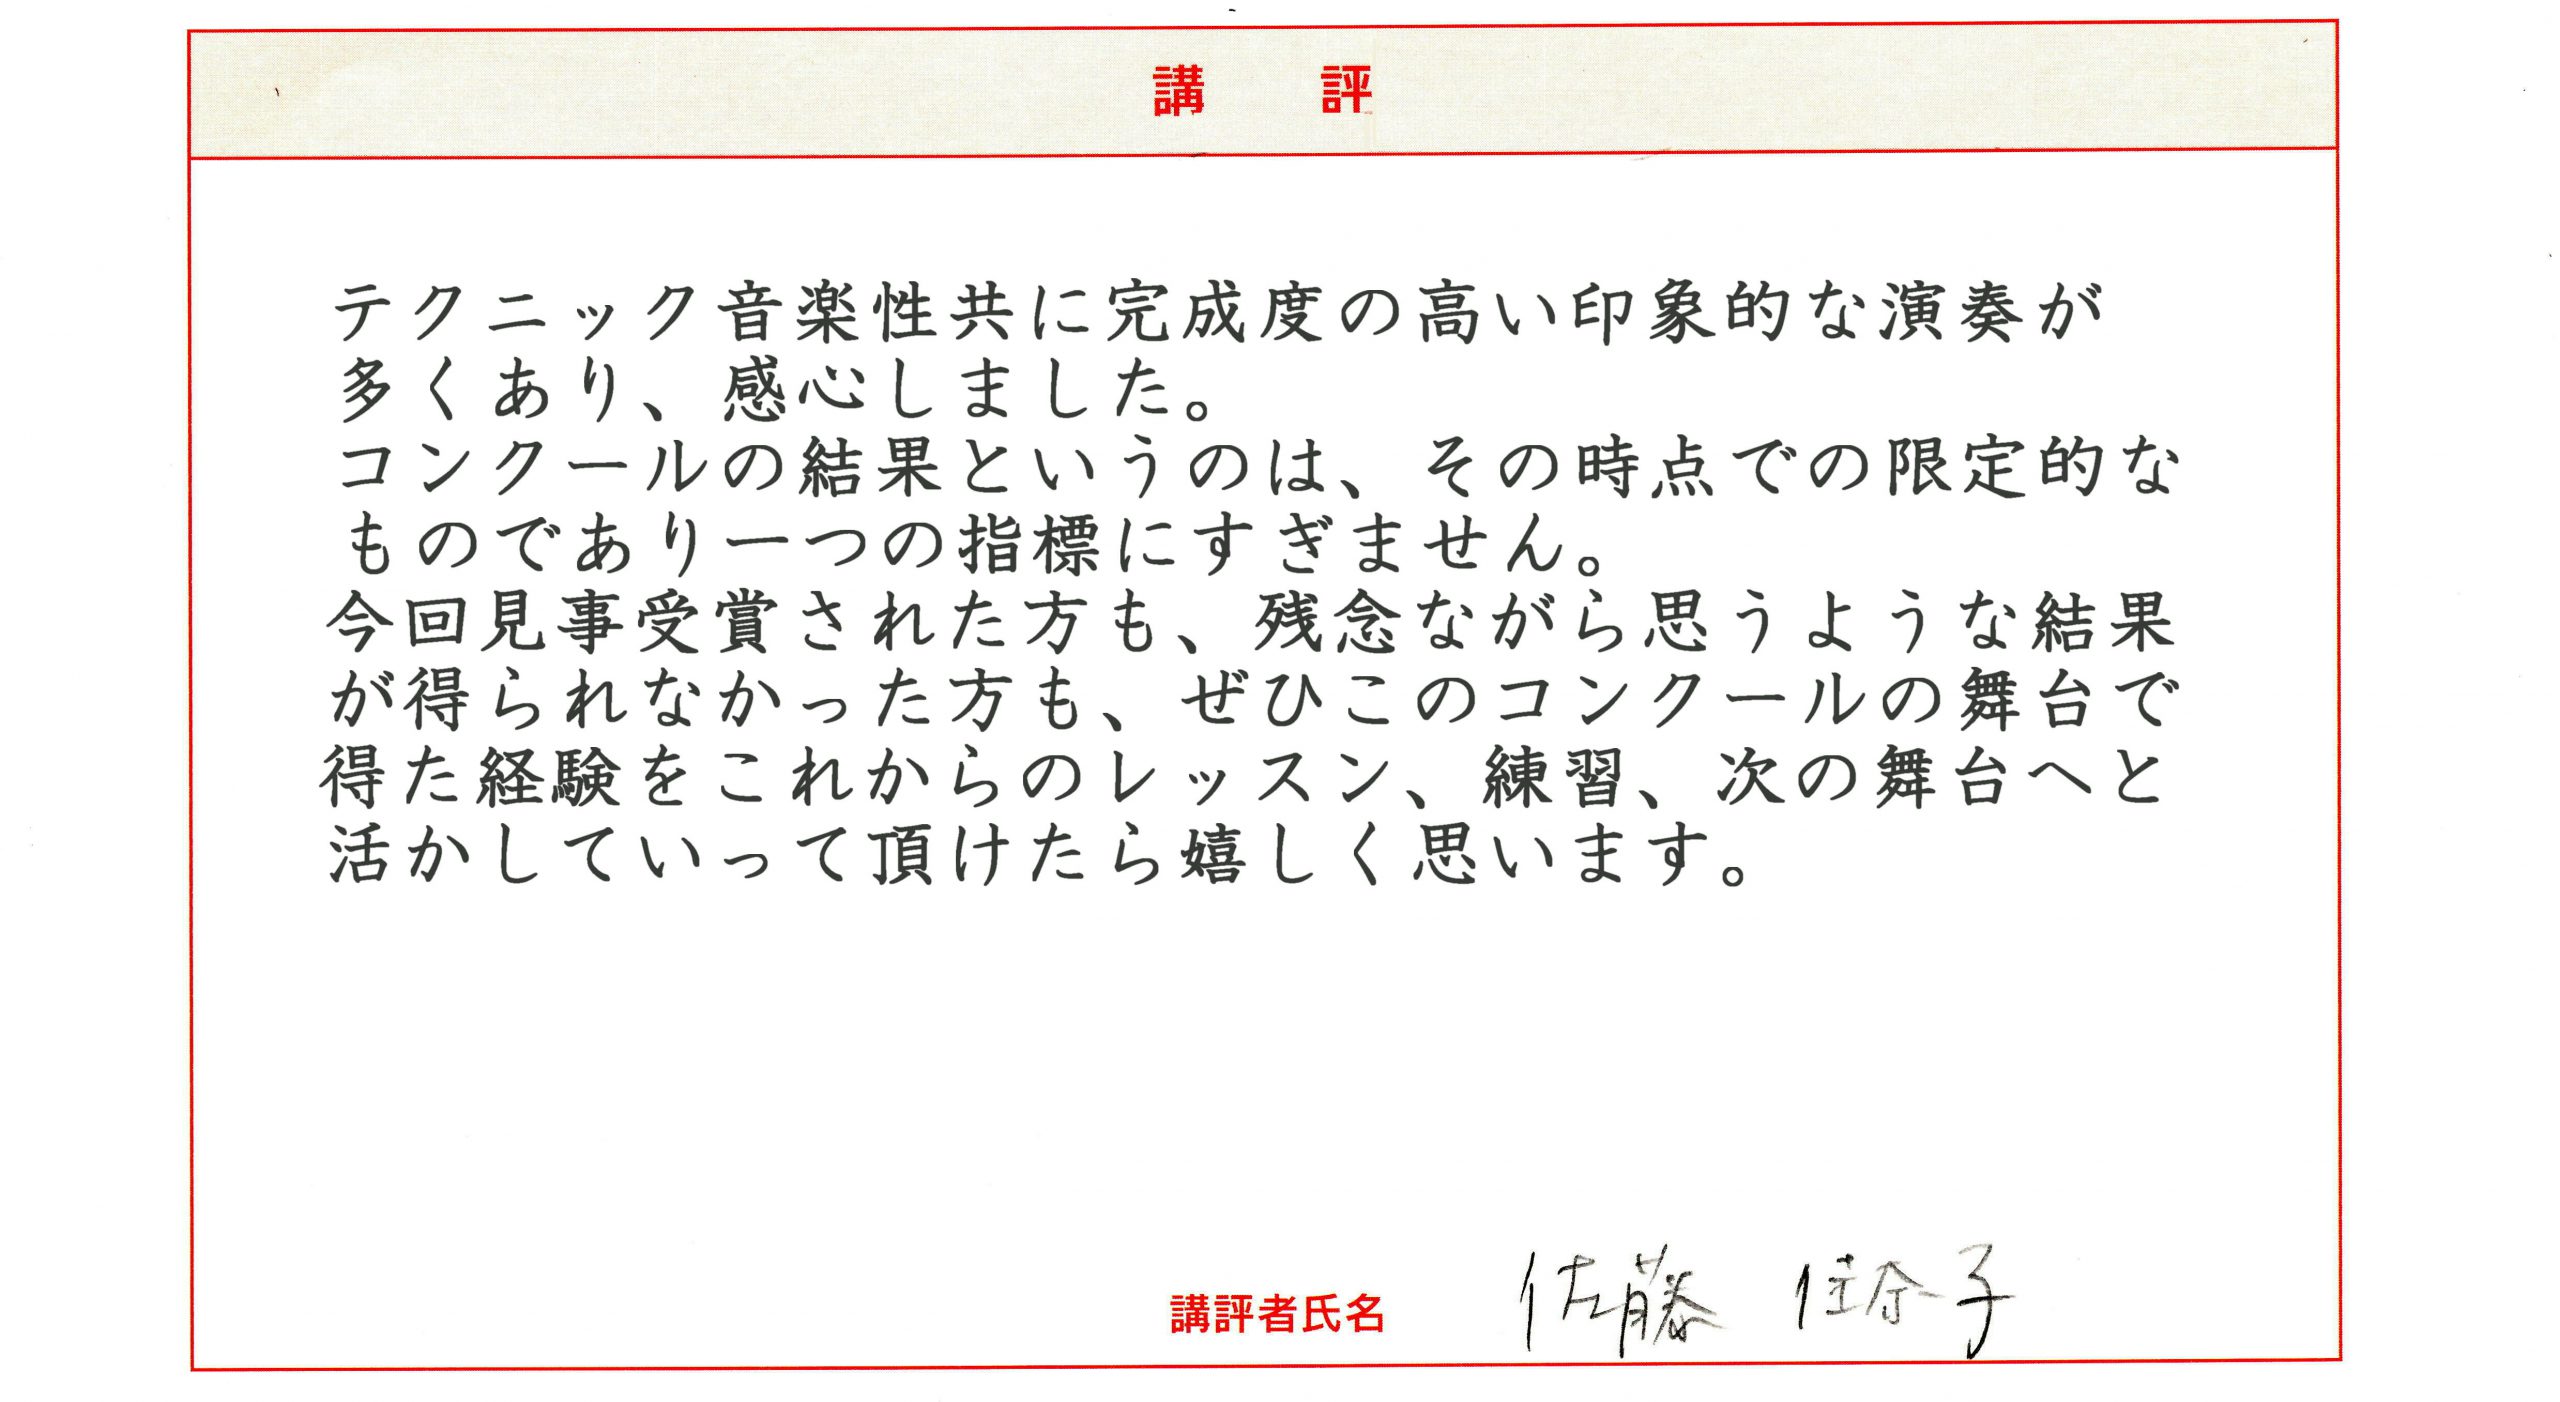 講 評
テクニック音楽性共に完成度の高い印象的な演奏が
多くあり、感心しました。
コンクールの結果というのは、その時点での限定的な
ものであり一つの指標にすぎません。
今回見事受賞された方も、残念ながら思うような結果
が得られなかった方も、ぜひこのコンクールの舞台で
得た経験をこれからのレッスン、練習、次の舞台へと
活かしていって頂けたら嬉しく思います。
講評者氏名 佐藤 佳奈子